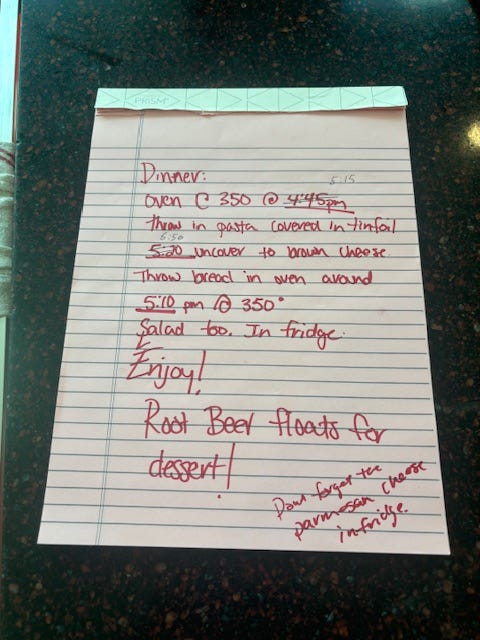 PRISM
Dinner:
5:15
oven @ 350 @ 4:45pm
throw in pasta covered in tinfoil
5:50
5:20 uncover to brown cheese
Throw bread in oven around
5:10 pm @ 350°
Salad too. In fridge.
Enjoy!
Root Beer floats for
dessert!
Dont forget the
parmesan cheese
in fridge.